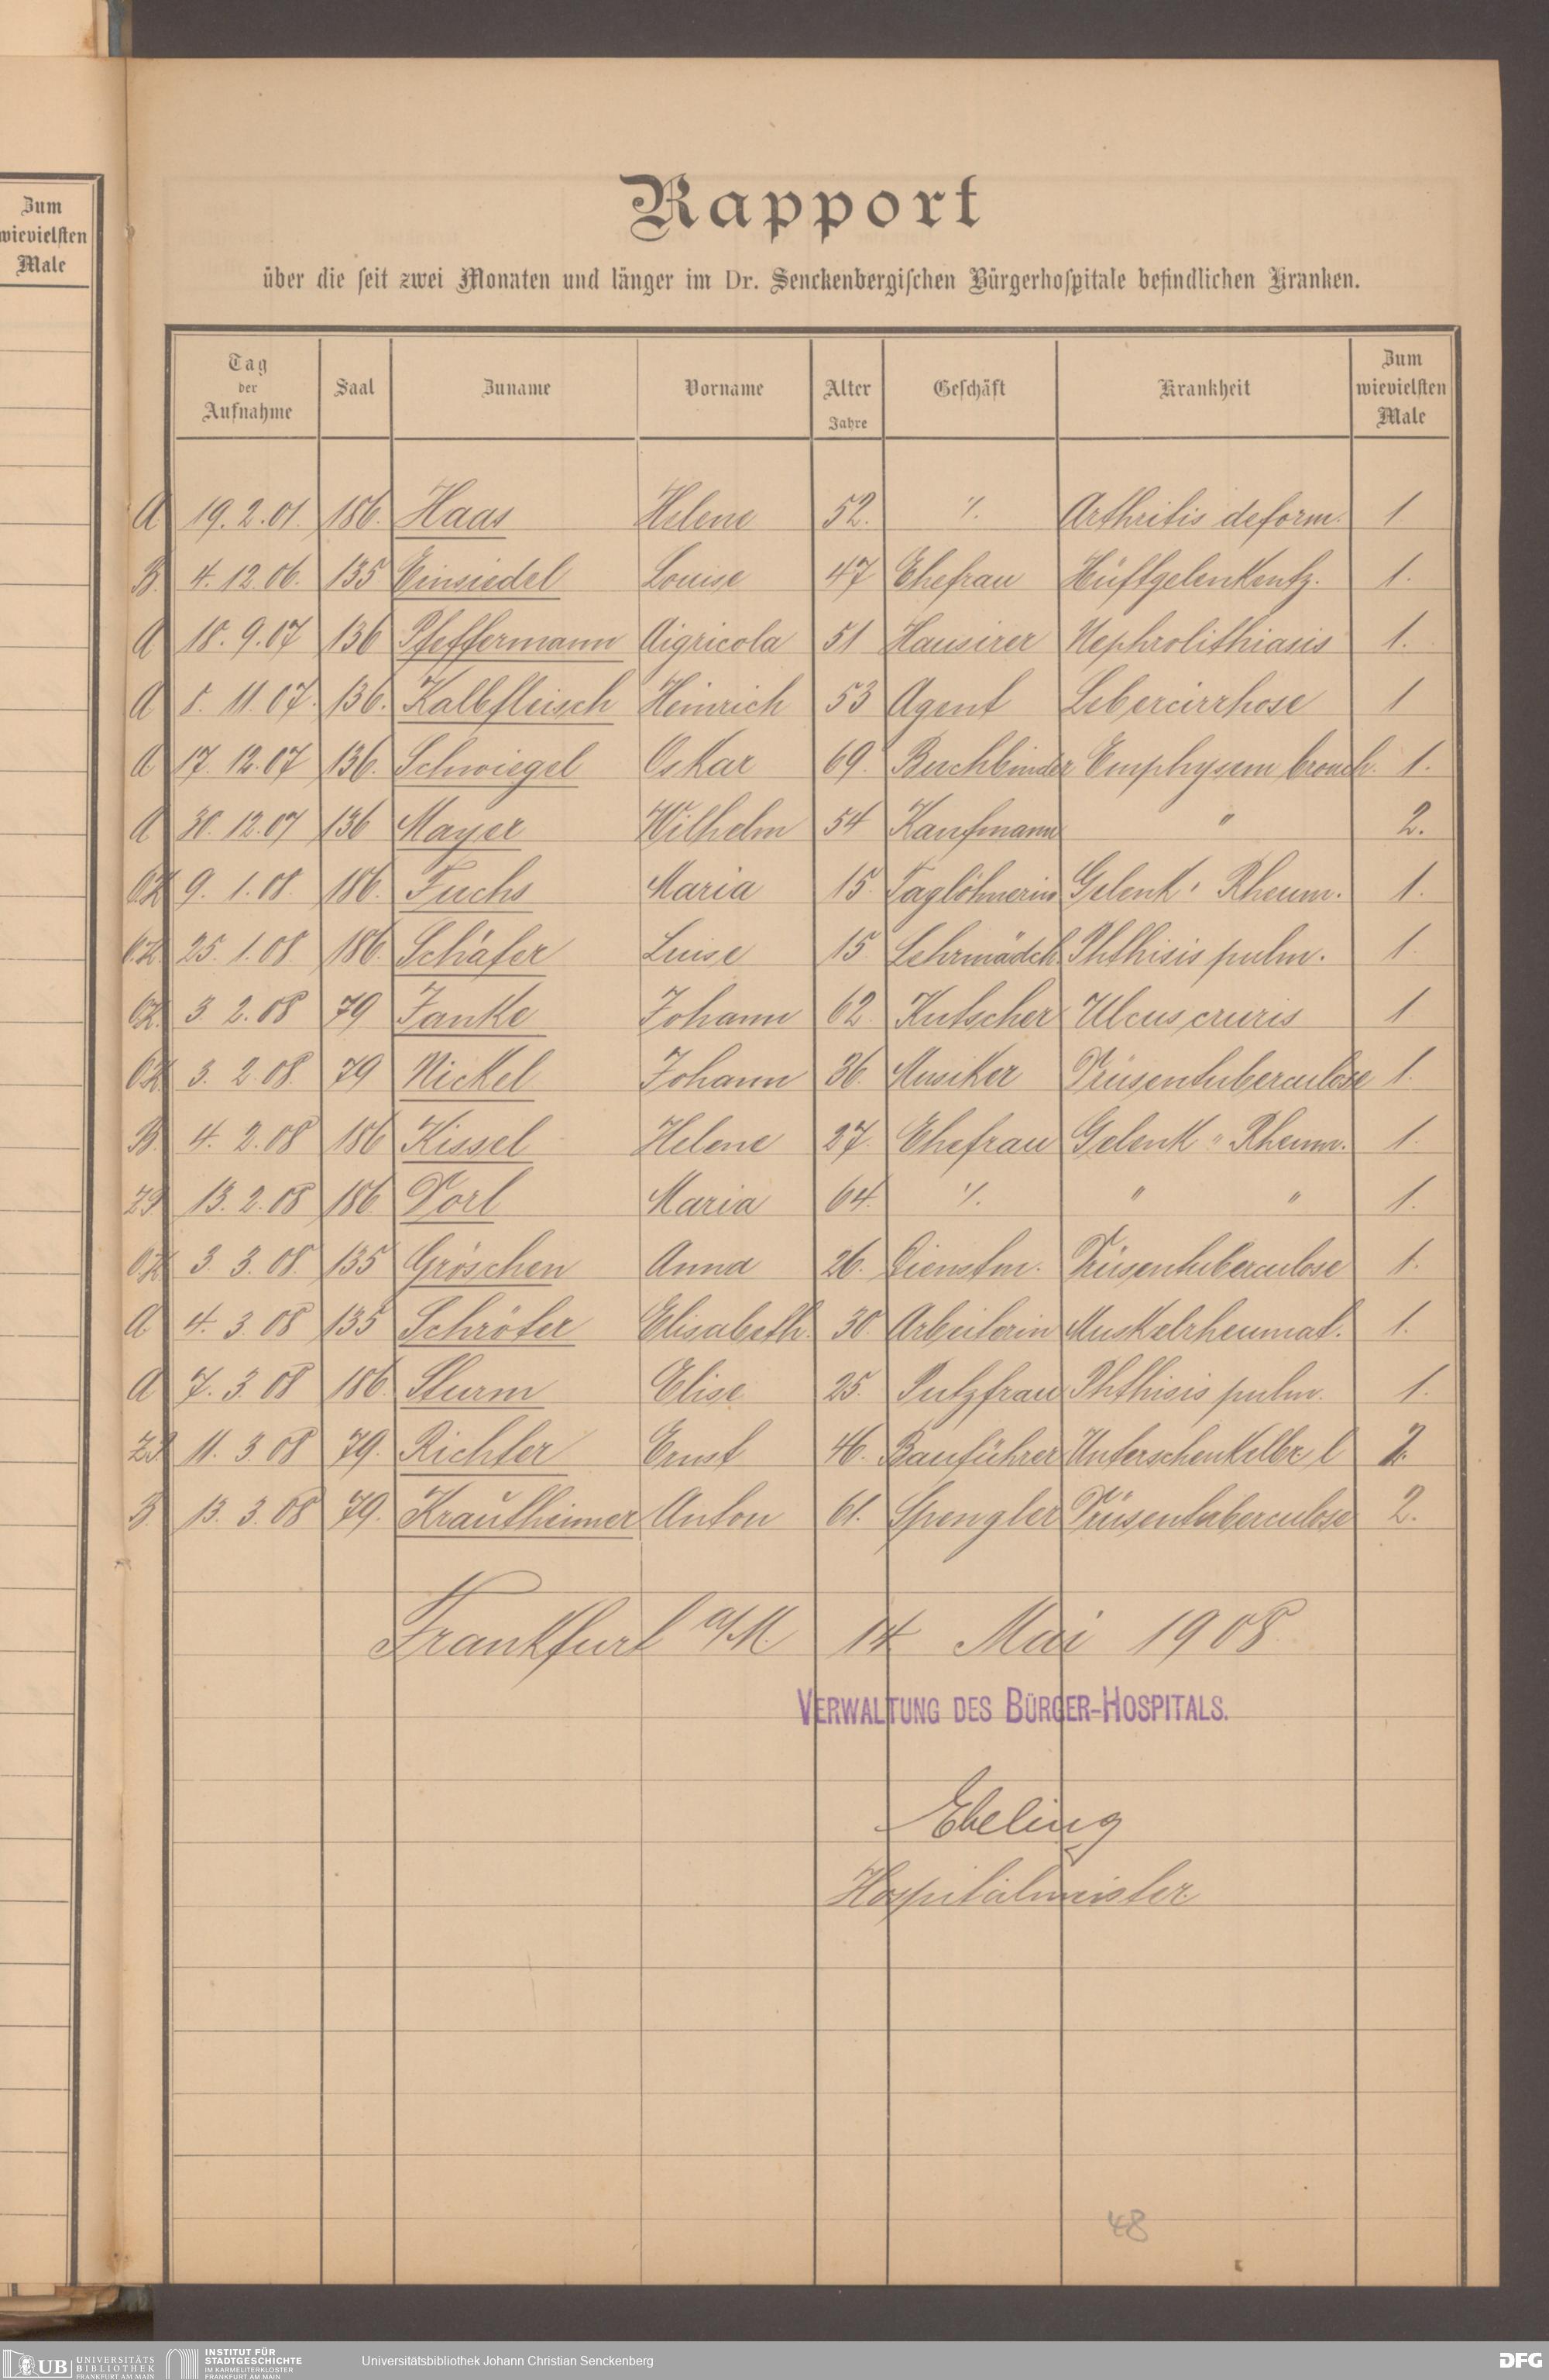 Zum
wievielsten
Male
Rapport
über die seit zwei Monaten und länger im Dr. Senckenbergischen Bürgerhospitale befindlichen Kranken.
Tag der Aufnahme Saal Zuname Vorname Alter Jahre Geschäft Krankheit Zum wievielsten Male
A 19. 2. 01. 186. Haas Helene 52. ·/. Arthritis deform. 1
B. 4. 12. 06. 135 Einsiedel Louise 47 Ehefrau Hüftgelenkentz. 1.
A 18. 9. 07 136 Pfeffermann Aigricola 51 Hausirer Nephrolithiasis 1.
A 8. 11. 07. 136. Kalbfleisch Heinrich 53 Agent Lebercirrhose 1
A 17. 12. 07 136. Schwiegel Oskar 69. Buchbinder Emphysem bronch. 1.
A 30. 12. 07 136 Mayer Wilhelm 54 Kaufmann " 2.
9. 1. 08. 186. Fuchs Maria 15. Taglöhnerin Gelenk Rheum. 1.
25. 1. 08. 186. Schäfer Luise 15 Lehrmädch. Phthisis pulm. 1.
3. 2. 08 79 Janke Johann 62. Kutscher Ulcus cruris 1
3. 2. 08. 79 Nickel Johann 36. Musiker Drüsentuberculose 1.
B. 4. 2. 08 186 Kissel Helene 27. Ehefrau Gelenk " Rheum. 1.
13. 2. 08 186 Dorl Maria 64. ·/. " " 1.
3. 3. 08. 135 Gröschen Anna 26. Dienstm. Drüsentuberculose 1.
A 4. 3. 08 135 Schröter Elisabeth. 30. Arbeiterin Muskelrheumat. 1.
A 7. 3. 08 186. Sturm Elise 25. Putzfrau Phthisis pulm. 1.
11. 3. 08 79. Richter Ernst 46. Bauführer Unterschenkelbr. l 2.
B. 13. 3. 08 79. Krautheimer Anton 61. Spengler Drüsentuberculose 2.
Frankfurt a/M. 14 Mai 1908
VERWALTUNG DES BÜRGER-HOSPITALS.
Ebeling
Hospitalmeister
48
UB UNIVERSITÄTS BIBLIOTHEK FRANKFURT AM MAIN
INSTITUT FÜR STADTGESCHICHTE IM KARMELITERKLOSTER FRANKFURT AM MAIN
Universitätsbibliothek Johann Christian Senckenberg
DFG